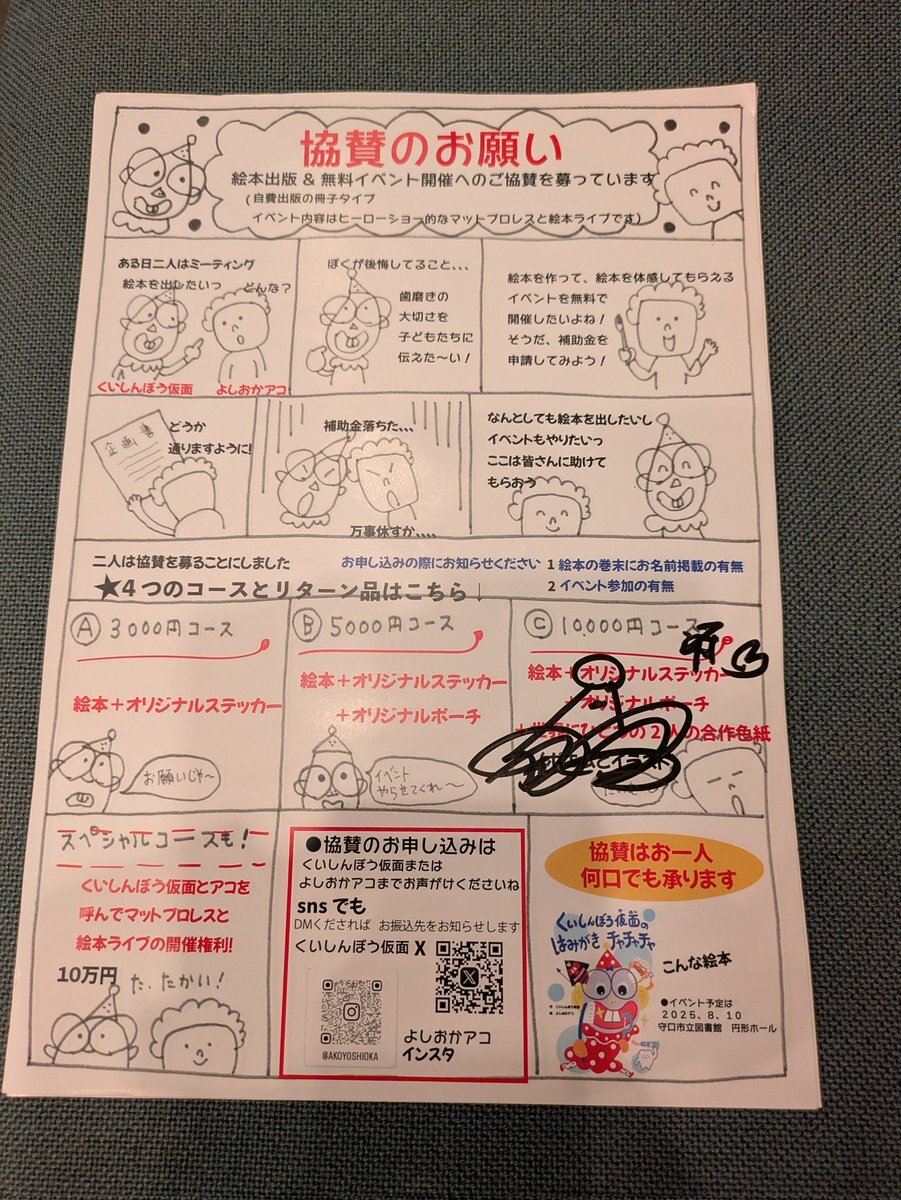 協賛のお願い
絵本出版 & 無料イベント開催へのご協賛を募っています
(自費出版の冊子タイプ
イベント内容はヒーローショー的なマットプロレスと絵本ライブです)
ある日二人はミーティング
絵本を出したいっ
どんな?
くいしんぼう仮面
よしおかアコ
ぼくが後悔してること、、、
歯磨きの
大切さを
子どもたちに
伝えた〜い!
絵本を作って、絵本を体感してもらえる
イベントを無料で
開催したいよね!
そうだ、補助金を
申請してみよう!
企画書
どうか
通りますように!
補助金落ちた、、、
万事休すか、、、、
なんとしても絵本を出したいし
イベントもやりたいっ
ここは皆さんに助けて
もらおう
二人は協賛を募ることにしました
お申し込みの際にお知らせください
1 絵本の巻末にお名前掲載の有無
2 イベント参加の有無
★4つのコースとリターン品はこちら↓
A 3000円コース
絵本+オリジナルステッカー
お願いじゃ〜
B 5000円コース
絵本+オリジナルステッカー
+オリジナルポーチ
イベント
やらせてくれ〜
C 10,000円コース
絵本+オリジナルステッカー
+オリジナルポーチ
の2人の合作色紙
スペシャルコースも!
くいしんぼう仮面とアコを
呼んでマットプロレスと
絵本ライブの開催権利!
10万円
た、たかい!
●協賛のお申し込みは
くいしんぼう仮面または
よしおかアコまでお声がけくださいね
snsでも
DMくだされば お振込先をお知らせします
くいしんぼう仮面 X
@AKOYOSHIOKA
よしおかアコ
インスタ
協賛はお一人
何口でも承ります
くいしんぼう仮面の
はみがきチャチャチャ
こんな絵本
●イベント予定は
2025、8、10
守口市立図書館 円形ホール